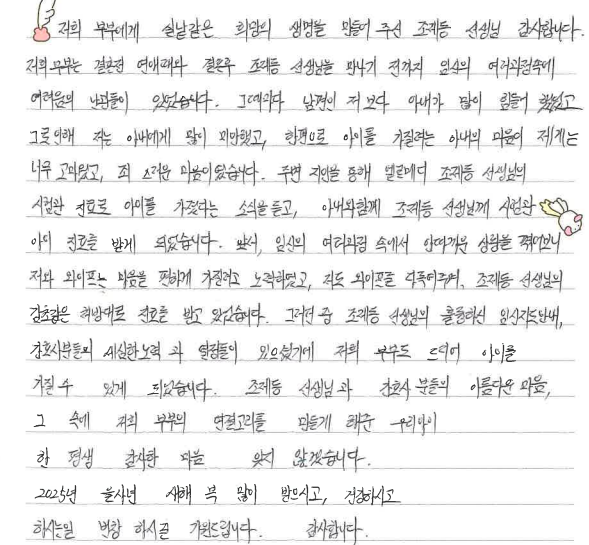 저희 부부에게 실낱같은 희망의 생명을 만들어 주신 조재동 선생님 감사합니다.
저희 부부는 결혼전 연애때와 결혼후 조재동 선생님을 만나기 전까지 임신의 여러과정속에
어려움의 난관들이 있었습니다. 그때마다 남편인 저 보다 아내가 많이 힘들어 했었고
그로인해 저는 아내에게 많이 미안했고, 한편으로 아이를 가질려는 아내의 마음이 저에게는
너무 고마웠고, 죄스러운 마음이었습니다. 주변 지인을 통해 조재동 선생님의
시험관 진료로 아이를 가졌다는 소식을 듣고, 아내와함께 조재동 선생님께 시험관
아이 진료를 받게 되었습니다. 앞서, 임신의 여러과정 속에서 안타까운 상황을 겪어보니
저와 와이프는 마음을 편하게 가질려고 노력하였고, 저도 와이프를 다독여주며, 조재동 선생님의
진료를 받고 있었습니다. 그러던 중 조재동 선생님의 훌륭하신
간호사분들의 세심한노력과 열정들이 있으셨기에 저희 부부도 드디어 아이를
가질 수 있게 되었습니다. 조재동 선생님과 간호사 분들의 아름다운 마음,
그 속에 저희 부부의 연결고리를 만들게 해준 우리아이
한 평생 감사한 마음 잊지 않겠습니다.
2025년 을사년 새해 복 많이 받으시고, 건강하시고
하시는일 번창 하시길 기원드립니다. 감사합니다.